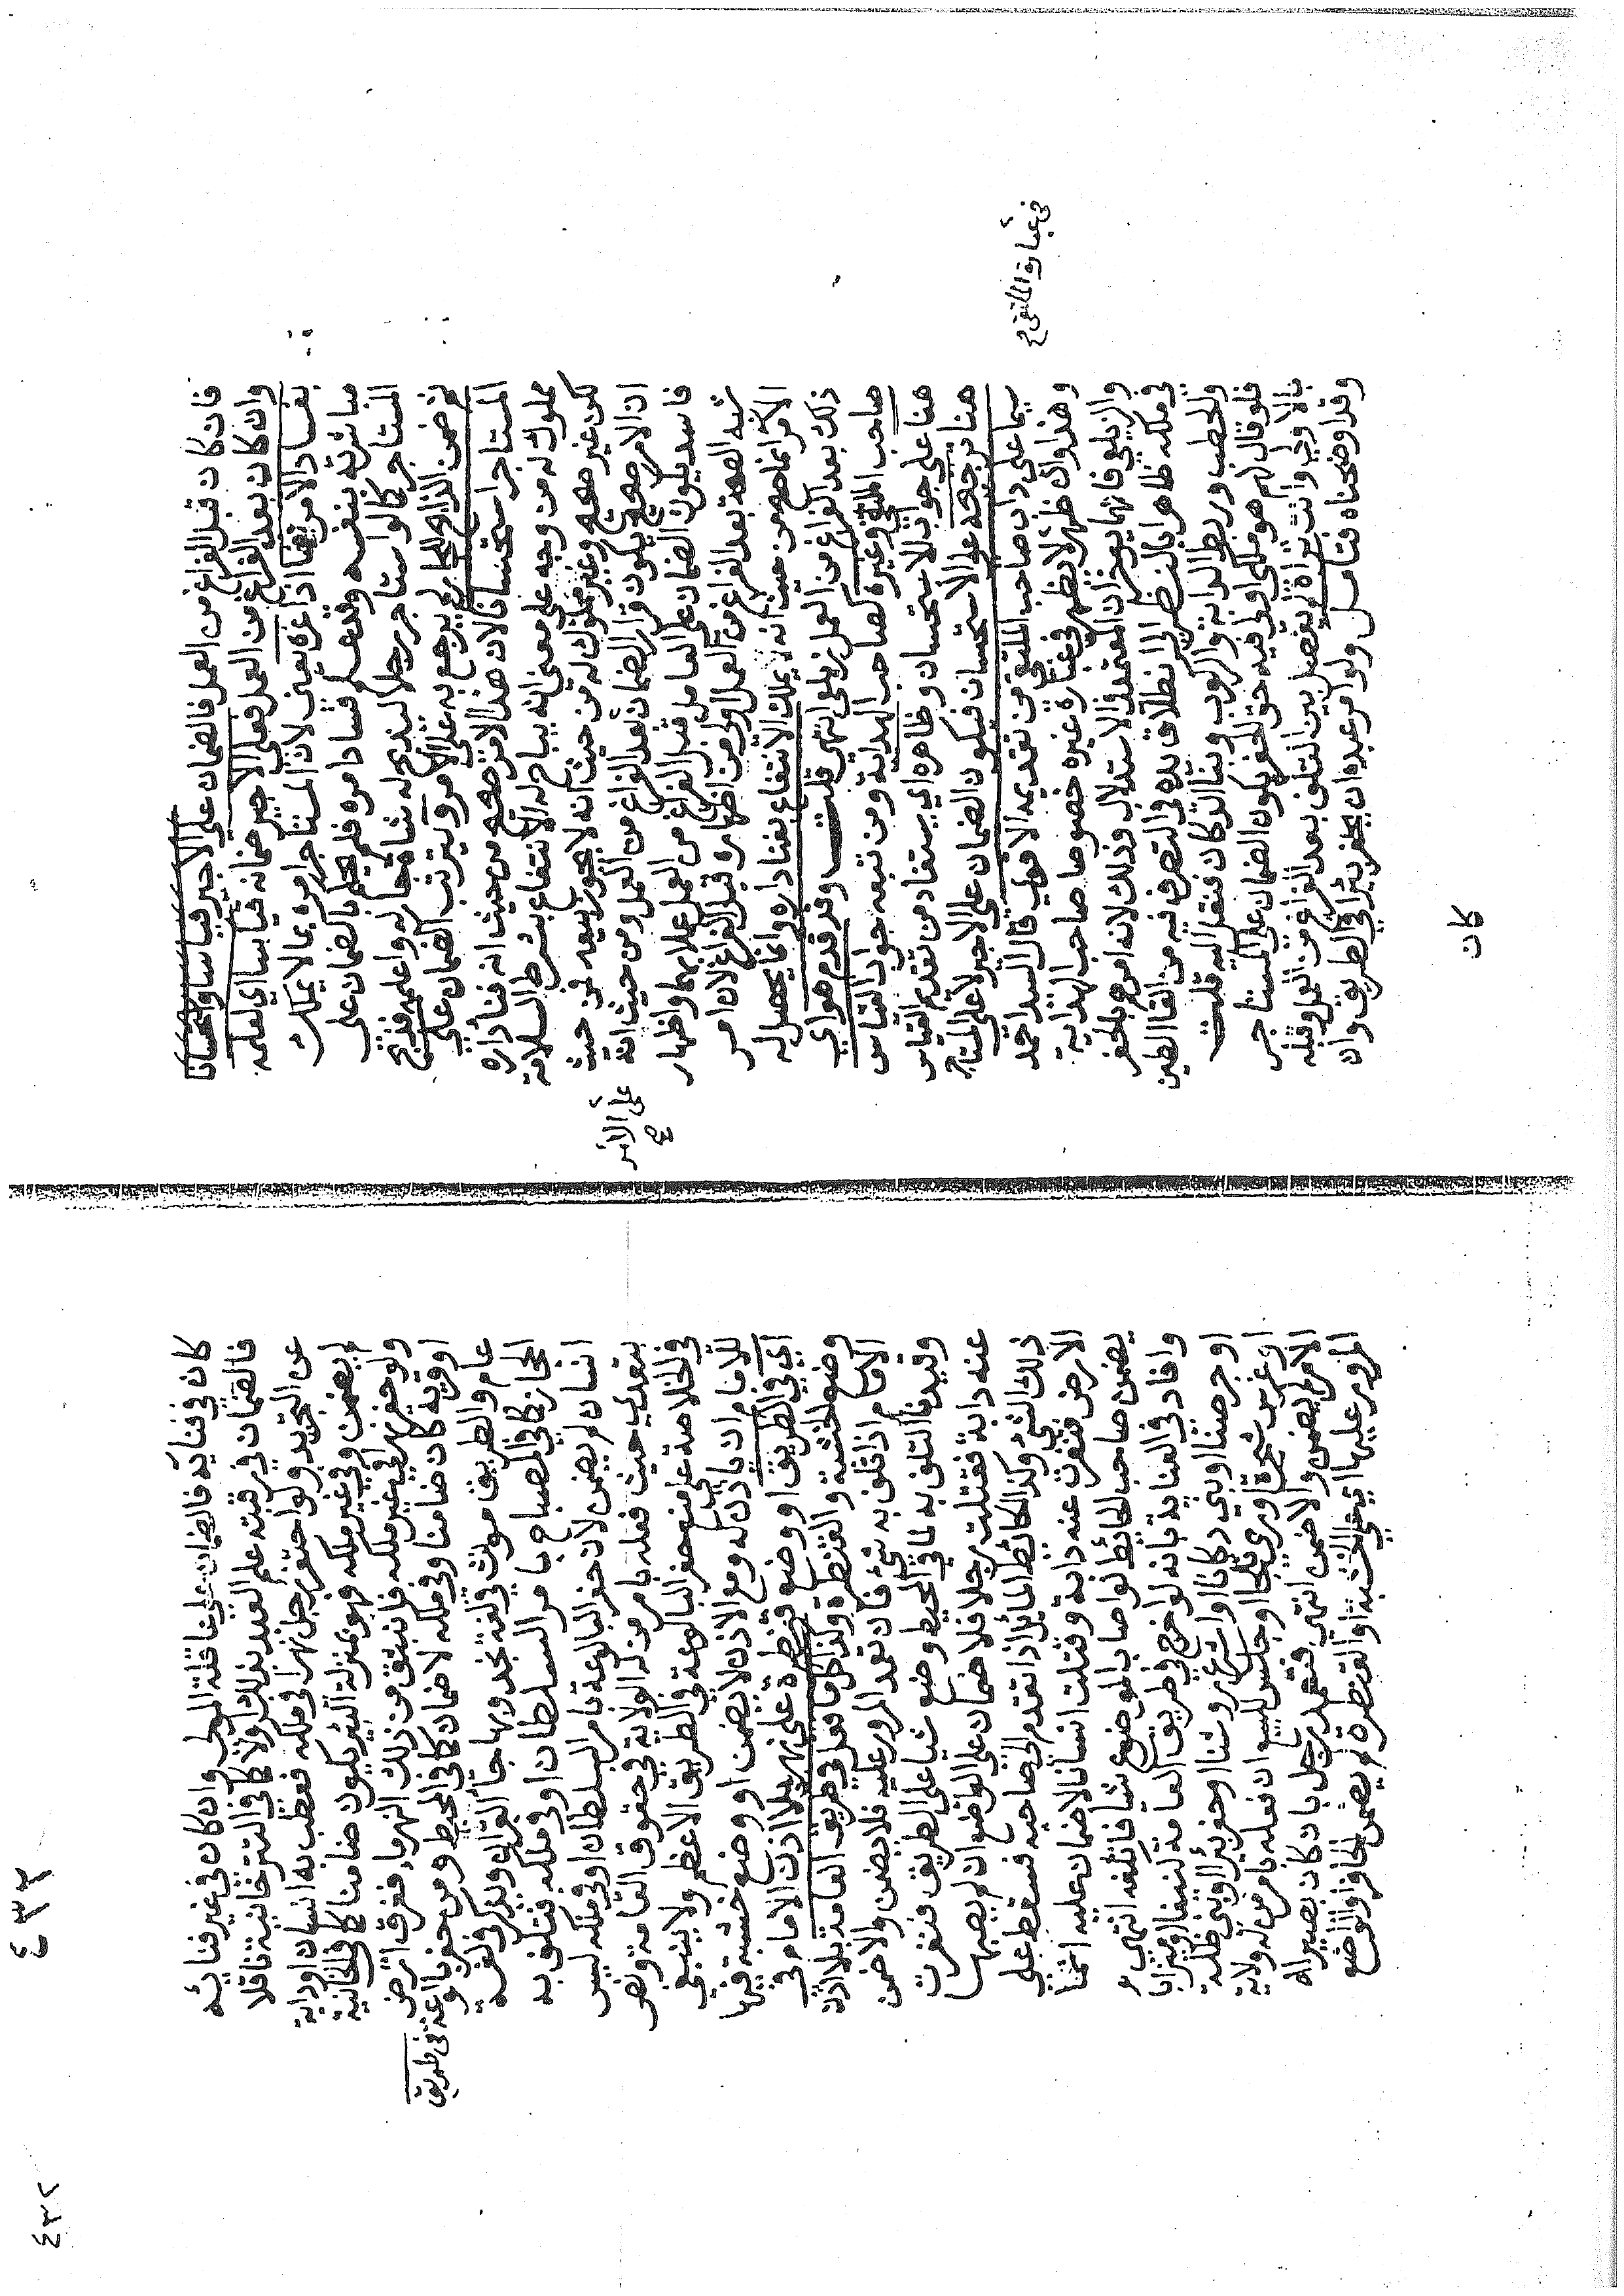 فان كان قبل الفراغ من العمل فالضمان علي الاجير قياسا واستحسانا
وان كان بعد الفراغ من العمل فعلي الاجير ضمانه قياسا اي لعلمه
بفساد الامر اذ غره يعني لان المستاجر امره بما لا يملك
مباشرته بنفسه وقد علم فساد امره فلم يحكم بالضمان علي
المستاجر كما لو استاجر رجلا ليذبح له شاة جار له واعلمه فذبح
ثم ضمن الذابح للجار لم يرجع به علي الامر ويترتب الضمان علي
المستاجر استحسانا لان هذا الامر صحيح من حيث ان فناء داره
مملوك له من وجه علي معني انه يباح له الانتفاع بشرط السلامة
لكن غير صحيح وغير مملوك له من حيث انه لا يجوز بيعه فمن حيث
ان الامر صحيح يكون قرار الضمان علي الآمر بعد الفراغ من العمل ومن حيث انه
فاسد يكون الضمان علي العامل قبل الفراغ من العمل عملا بهما واظهار
شبه الصحة بعد الفراغ من العمل اولي من اظهاره قبل الفراغ لان امر
الآمر انما صح من حيث انه يملك الانتفاع بفناء داره وانما يحصل له
ذلك بعد الفراغ من العمل زيلعي انتهي قلت وقد قدم هو اي
صاحب الملتقي وغيره كصاحب الهداية ومن تبعه جواب القياس
هنا علي جواب الاستحسان وظاهره اي يستفاد من تقديم القياس
هنا ترجيحه علي الاستحسان فيكون الضمان علي الاجير لا علي المستاجر
سيما علي داب صاحب الملتقي من تقديمه الاقوي قال السيد احمد
وهذا وان ظهر لا يظهر في عبارة غيره خصوصا صاحب الهداية
في عبارة الملتقي صح
والزيلعي فانهما يوخران المعتمد في الاستدلال وذلك لانه امره بالحفر
في ملكه ظاهرا بالنظر الي اطلاق يده في التصرف فيه من القا الطين
والحطب وربط الدابة والركوب وبنا الدكان فنقل اليه قلت
فلو قال لهم هو ملكي او لي فيه حق الحفر يكون الضمان علي المستاجر
بالاولي وانت تراه لم يفصل بين التلف بعد الفراغ من العمل وقبله
وقد اوضحناه فتامل ولو امر عبده ان يحفر بئرا في الطريق وان
كان
٤٣٢
كان في فنائه فالضمان علي عاقلة المولي وان كان في غير فنايه
فالضمان في رقبته علم العبد بذلك اولا كما في التترخانية ناقلا
عن التجريد ولو احتفر رجل نهرا في ملكه فعطب به انسان او دابة
لم يضمن وفي غير ملكه فهو بمنزلة البئر يكون ضامنا كما في الخانية
ولو حفر نهرا في غير ملكه فانبثق من ذلك النهر ماء فغرق ارض
او قرية كان ضامنا وفي ملكه لا ضمان كما في المحيط ومن حفر بالوعة في طريق
عام والطريق مونث في لغة نجد وبها جاء القران ويذكر في لغة
الحجاز كما في المصباح بامر السلطان او في ملكه فتلف به
انسان لم يضمن لان حفر البالوعة بامر السلطان او في ملكه ليس
بتعد حيث فعله بامر من له الولاية في حقوق العامة ونص
في الخلاصة علي منع حفر البالوعة في الطريق الاعظم ولا ينبغي
للامام ان ياذن له ومع الاذن لا يضمن او وضع خشبة فيها
اي في الطريق او وضع قنطرة علي نهر بلا اذن الامام في
وضع الخشبة والقنطرة وكذا كل ما فعل في طريق العامة بلا اذن
الامام اذا تلف به شئ فان تعمد المرور عليه فلا يضمن والا ضمن
وقيدنا التلف به لما في المحيط وضع شيا علي الطريق فنفرت
عنه دابة فقتلت رجلا فلا ضمان علي الواضع ان لم يصبها
ذلك الشئ وكذا الحائط المائل اذا تقدم الي صاحبه فسقط علي
الارض فنفرت عنه دابة وقتلت انسانا لا ضمان عليه انما
يضمن صاحب الحائط لو اصاب الموضع شيا فاتلفه انتهي
وافاد في العناية بانه لو اخرج في طريق العامة كنيفا او ميزابا
او جرصنا او بني دكانا او اشرع روشنا او حفر بئرا او بني ظلة
او غرس شجرة او رمي ثلجا او جلس للبيع ان فعله بامر من له ولاية
الامر لم يضمن والا ضمن انتهي فتعمد رجل بان كان بصيرا
المرور عليها اي علي الخشبة او القنطرة لم يضمن الحافر والواضع
٤٣٢